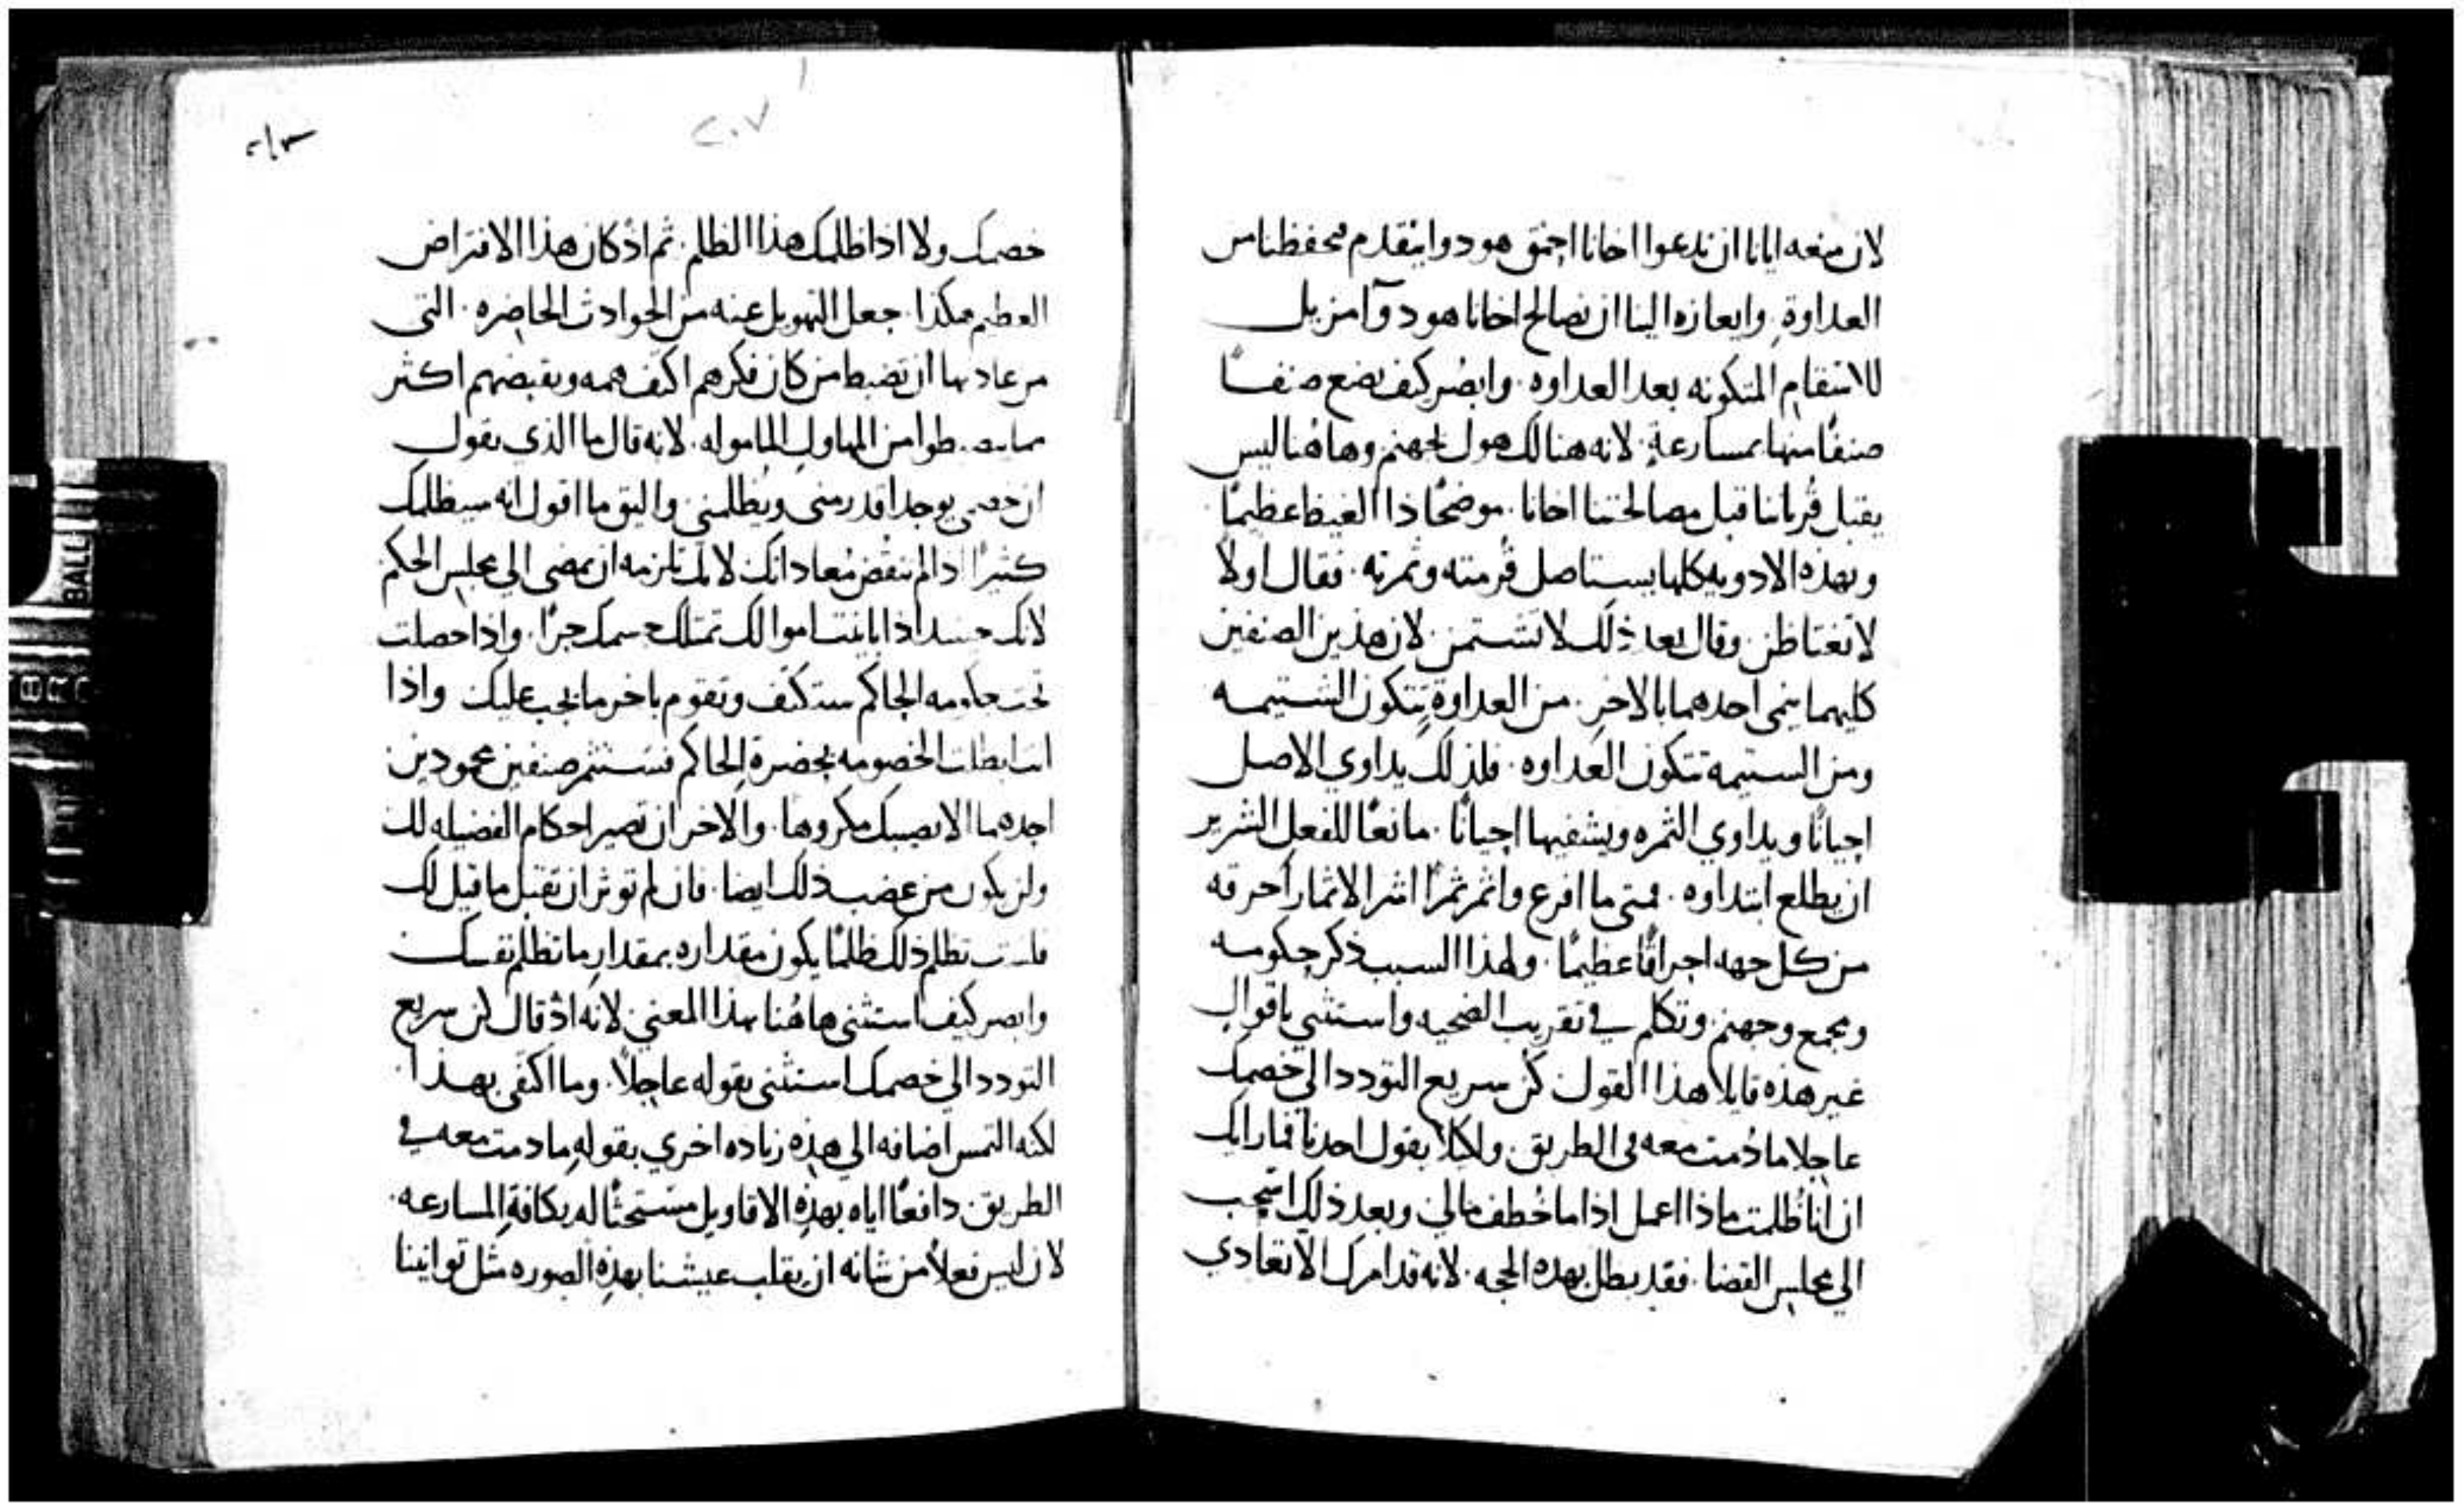 لان منعه ايانا ان ندعوا اخانا احمق هو دوا يتقدم فيحفظنا من
العداوة. وايعازه الينا ان نصالح اخانا هو دوآ مزيل
للانتقام المتكونه بعد العداوه. وابصر كيف يضع صنفًا
صنفًا منها بمسارعةٍ. لانه هنالك هول بجهنم وهاهُنا ليس
يقبل قُرباننا قبل مصالحتنا اخانا. موضحًا ذا الغيظ عظيمًا
وبهذه الادويه كلها يستاصل قُرمته وثمرته. فقال اولًا
لا تغتاظن وقال بعد ذلك لا تشتمن. لان هذين الصنفين
كليهما ينمي احدهما بالاخر. من العداوة تتكون الشتيمه
ومن الشتيمه تتكون العداوه. فلذلك يداوي الاصل
احيانًا ويداوي الثمره ويشفيها احيانًا. مانعًا للفعل الشرير
ان يطلع ابتداوه. فمتى ما افرع واثمر ثمرًا اشر الاثمار احرقه
من كل جهه احراقًا عظيمًا. ولهذا السبب ذكر حكومه
ومجمع وجهنم. وتكلم في تقريب الضحيه واستثني باقوال
غير هذه قايلا هذا القول كن سريع التودد الي خصمك
عاجلا ما دُمت معه في الطريق. ولكيلا يقول احدنا فما رايك
ان انا ظُلمت ماذا اعمل اذا ما خُطف مالي وبعد ذلك اسُحب
الي مجلس القضا. فقد بطل بهذه الحجه. لانه قد امرك الا تعادي
٢٠٧
خصمك ولا اذا ظلمك هذا الظلم. ثم اذ كان هذا الافتراض
العظيم هكذا. جعل التهويل عنه من الحوادث الحاضره. التي
من عادتها ان تضبط من كان فكرهم اكثف همه وتقبضهم اكثر
من المامولِ الماموله. لانه قال ما الذي تقول
ان خصمي يوجد اقدر مني ويظلمني واليق ما اقول انه سيظلمك
كثيرًا اذا لم تنقض مُعاداتك لانك تلزمه ان يمضي الي مجلس الحكم
لانك حينيد اذا باينت اموالك تمتلك جسمك حرًا. واذا حصلت
تحت حكومه الحاكم ستكتف وتقوم باخر ما يجب عليك واذا
انت ابطلت الخصومه بحضرة الحاكم فستستثمر صنفين محمودين
احدهما الا يصيبك مكروها. والاخر ان تصير احكام الفضيله لك
ولن يكون من غصب ذلك ايضا. فان لم توثر ان تقبل ما قيل لك
فلست تظلم ذلك ظلمًا يكون مقداره بمقدارِ ما تظلم نفسك
وابصر كيف استثنى هاهُنا بهذا المعنى لانه اذ قال كن سريع
التودد الي خصمك استثنى بقوله عاجلًا. وما اكتفى بهذا
لكنه التمس اضافه الي هذه زياده اخري بقولهِ ما دمت معه في
الطريق. دافعًا اياه بهذِهِ الاقاويل مستحثًا له بكافةِ المسارعه.
لان ليس فعلًا من شانه ان يقلب عيشنا بهذِهِ الصوره مثل توانينا